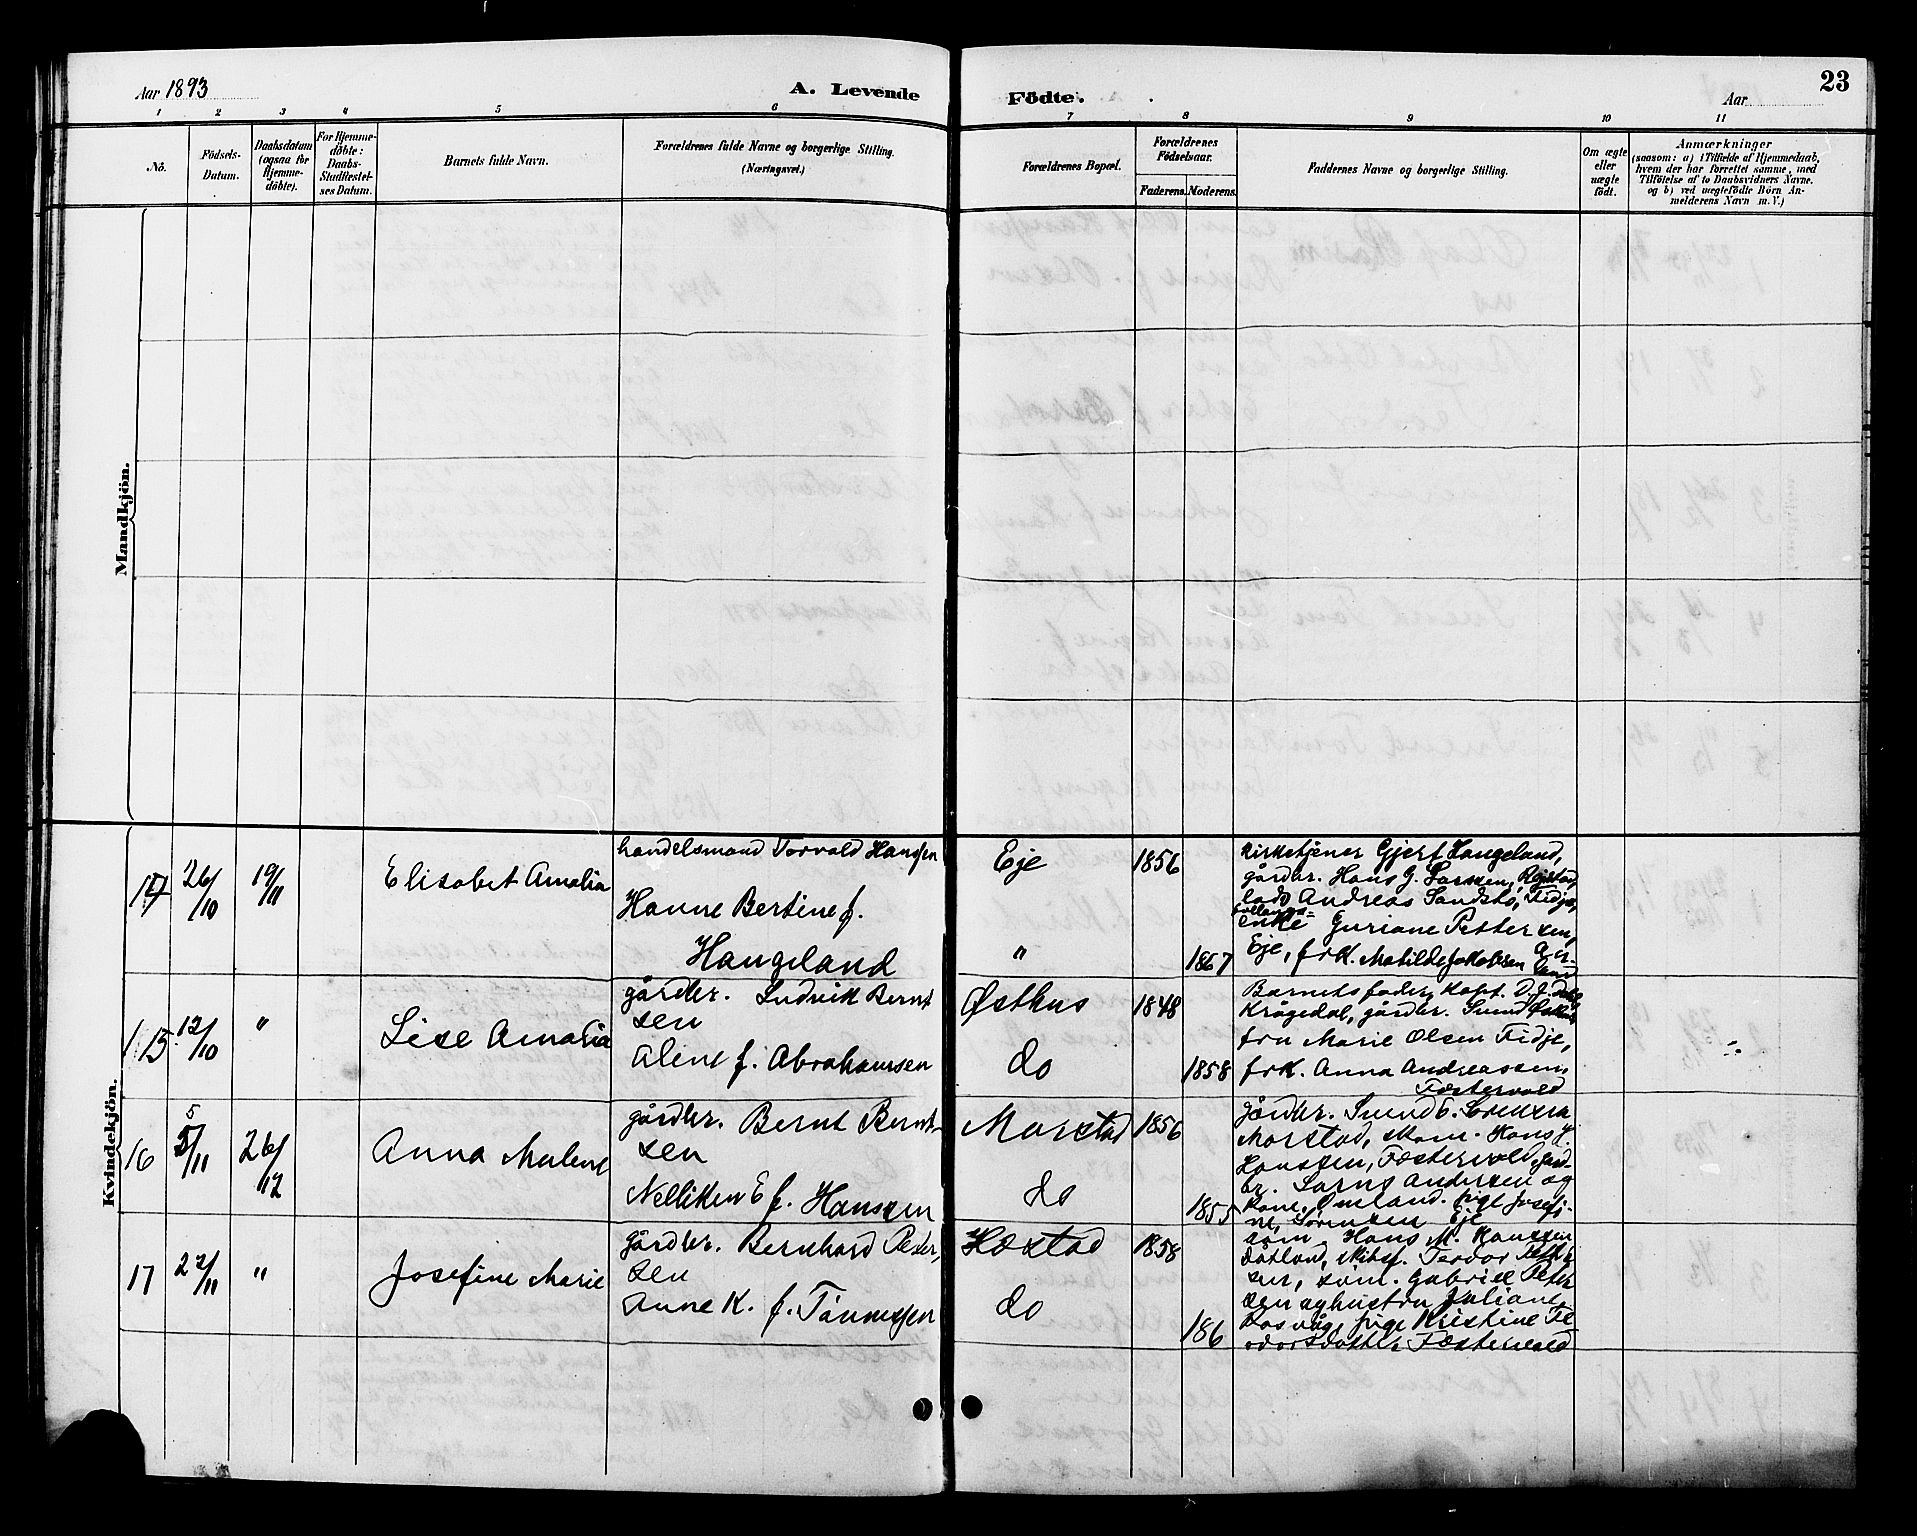 Aar 1893
A. Levende
Födte.
Aar
23
1 2 3 4 5 6 7 8 9 10 11
No.
Födsels-
Datum.
Daabsdatum
(ogsaa for
Hjemme-
döbte).
For Hjemme-
döbte:
Daabs-
Stadfæstel-
ses Datum.
Barnets fulde Navn.
Forældrenes fulde Navne og borgerlige Stilling.
(Næringsvei.)
Forældrenes Bopæl.
Forældrenes
Födselsaar.
Faderens.
Moderens.
Faddernes Navne og borgerlige Stilling.
Om ægte
eller
uægte
födt.
Anmærkninger
(saasom: a) i Tilfælde af Hjemmedaab,
hvem der har forrettet samme, med
Tilföielse af to Daabsvidners Navne.
og b) ved uægtefödte Börn An-
melderens Navn m. V.)
Mandkjön.
Kvindekjön.
14 26/10 19/11 Elisabet Amalia
handelsmand Torvald Hansen
Hanne Bertine f.
Haugeland
Eje 1856
" 1867
Kirketjener Gjert Haugeland,
gårdbr. Hans G. Larssen,
Andreas Sandstø, Fidje,
enke Guriane Pettersen,
Eje, frk. Matilde Jakobsen
15 12/10 " Lise Amalia
gårdbr. Ludvik Bernt
sen
Aline f. Abrahamsen
Østhus 1848
do 1858
Barnets fader, kapt.
Krågedal, gårdbr. Svend
fru Marie Olsen Fidje,
frk. Anna Andreassen,
Fæstervold
16 5/11 26/12 Anna Malene
gårdbr. Bernt Bernt-
sen
Nelliken E f. Hanssen
Marstad 1856
do 1855
gårdbr. Svend B. Sørensen
Morstad, skom. Hans J.
Hanssen, Fæstervold, gård-
br. Sørns Andersen og
kone, Omland. pige Josefi-
ne Sørensen Eje
17 22/11 " Josefine Marie
gårdbr. Bernhard Peter
sen
Anne K. f. Tønnessen
Hæstad 1858
do 186
søm. Hans M. Hanssen
Dåtland, skibsf. Teodor Petter
sen, søm. Gabriel Peter
sen og hustru Juliane
Rosvåg, pige Kristine Te
odorsdatter Fæstervold